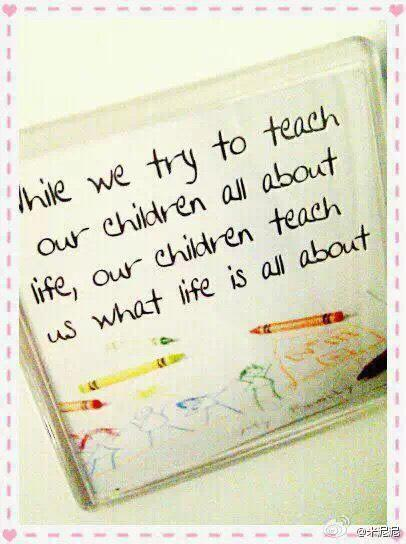 hile we try to teach
our children all about
life, our children teach
us what life is all about
my family
@米尼尼